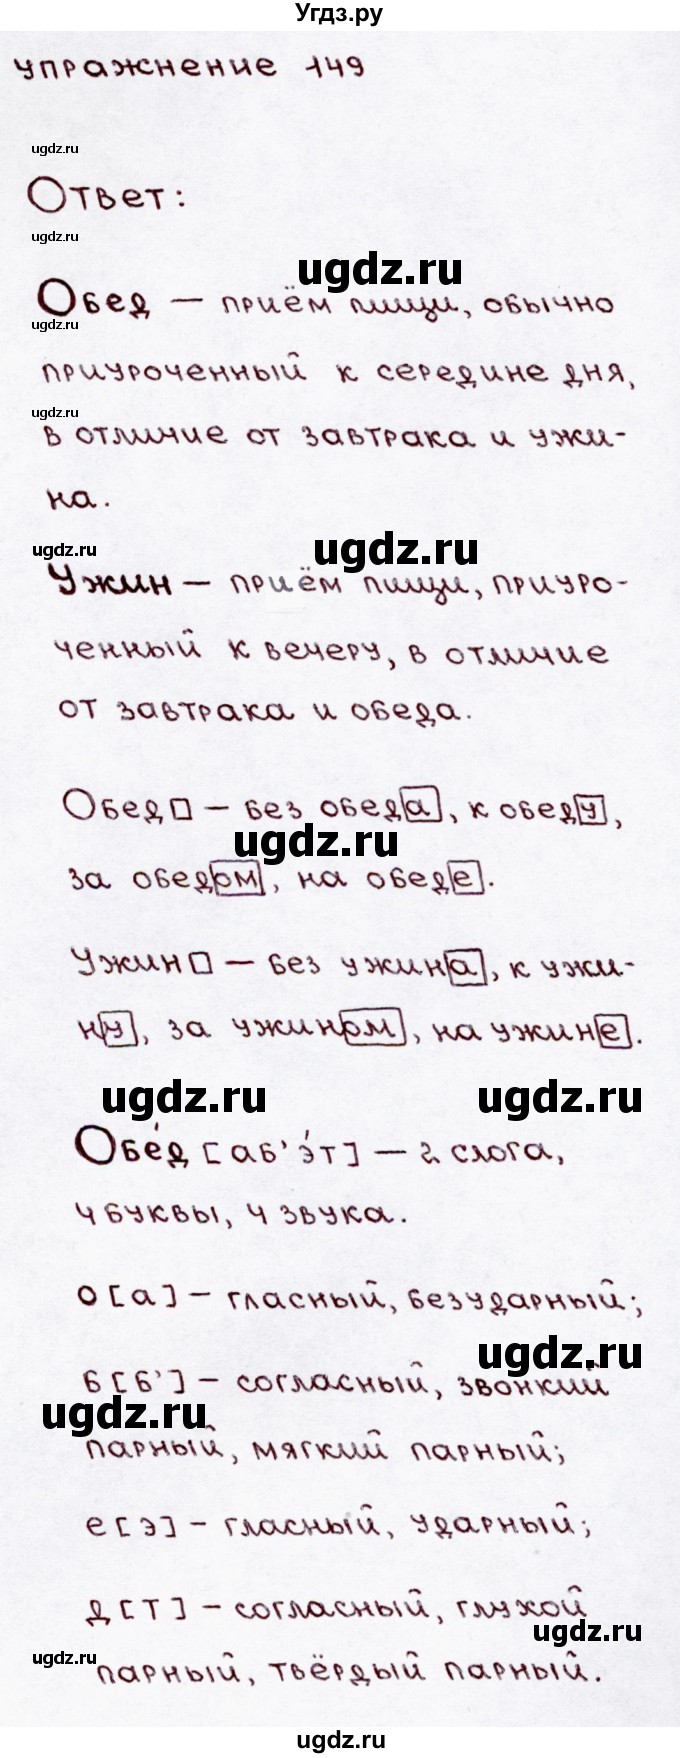 Угдз.ру
упражнение 149
ugdz.ru
Ответ:
ugdz.ru
ugdz.ru
Обед — приём пищи, обычно
ugdz.ru
приуроченный к середине дня,
ugdz.ru
в отличие от завтрака и ужи-
на.
ugdz.ru
ugdz.ru
Ужин — приём пищи, приуро-
ченный к вечеру, в отличие
от завтрака и обеда.
Обед□ — без обеда, к обеду,
ugdz.ru
за обедом, на обеде.
Ужин□ — без ужина, к ужи-
ну, за ужином, на ужине.
ugdz.ru
ugdz.ru
Обе́д [аб’э́т] — 2 слога,
4 буквы, 4 звука.
о [а] — гласный, безударный;
ugdz.ru
б [б’] — согласный, звонкий
ugdz.ru
парный, мягкий парный;
е [э] — гласный, ударный;
д [т] — согласный, глухой
ugdz.ru
ugdz.ru
парный, твёрдый парный.
ugdz.ru